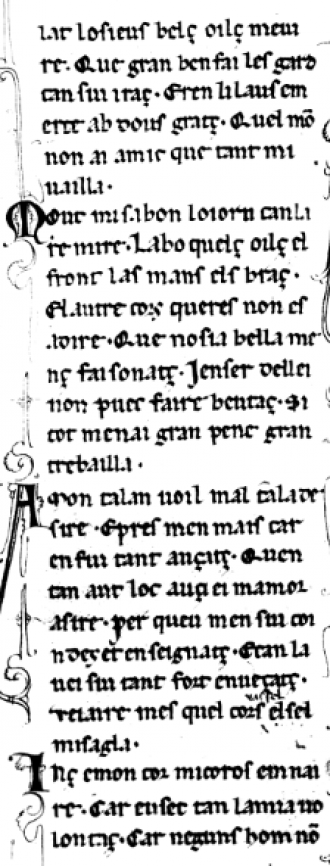 lar los ieus belç oilç meui
re. Que gran ben fai les gard
tan sui iraç. Eren li laus em
erce ab douſ gratç. Quel mõ
non ai amic que tant mi
uailla.
Mout mi sabon lo iorn tan li
re mire. La boqueiç oilç el
front las mans els braç.
El autre cors queres non es
a dire. Que nosia bella me
nç faisonatç. Jenser de llei
non puec faire beutaç. Si
tot men ai gran pene gran
trebailla.
A mon talan uoil mal tã la de
sire. E pres men mais car
en fui tant auçatç. Quen
tan aut loc auçei mamor
assire. per queu men sui cor
ndeç et enseignatç. E can la
uei sui tant fort enueçatç.
ueiaire mes quel cors el sel
misaglia.
Inç e mon cor mi coros em nai
re. Car eu sec tan lamia uo
lontaç. Car neguns hom nõ